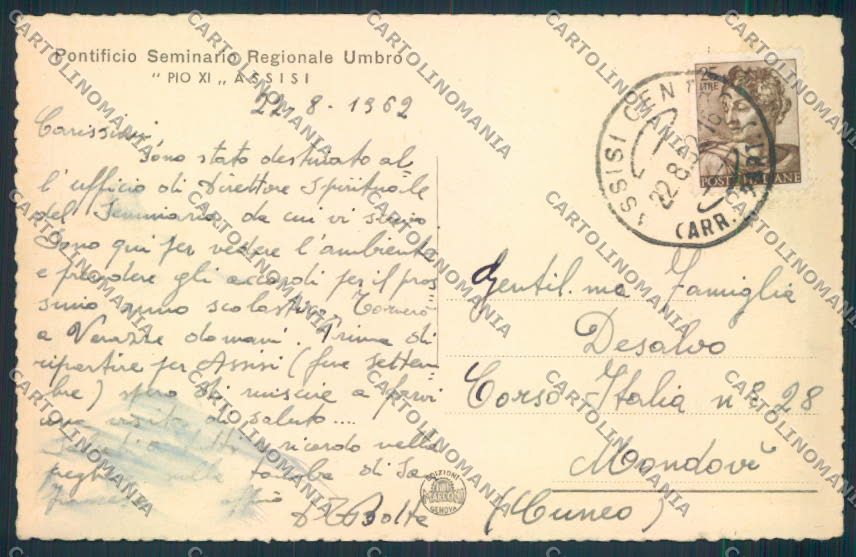 Pontificio Seminario Regionale Umbro
"PIO XI„ ASSISI
22-8-1962
Carissimi
Sono stato destinato al
l'ufficio di Direttore Spirituale
del Seminario da cui vi scrivo
Sono qui per vedere l'ambiente
e prendere gli accordi per il pros
simo anno scolastico. Tornerò
a Varazze domani. Prima di
ripartire per Assisi (fine settem
bre) spero di riuscire a farvi
una visita di saluto....
ricordo nella
preghiera sulla tomba di San
Francesco
D. Bolte
25
LIRE
POSTE ITALIANE
ASSISI CENTRO
22.8.62
(ARR. PART.)
Gentil.ma Famiglia
Desalvo
Corso Italia n° 28
Mondovì
(Cuneo)
EDIZIONI
MARCONI
GENOVA
CARTOLINOMANIA